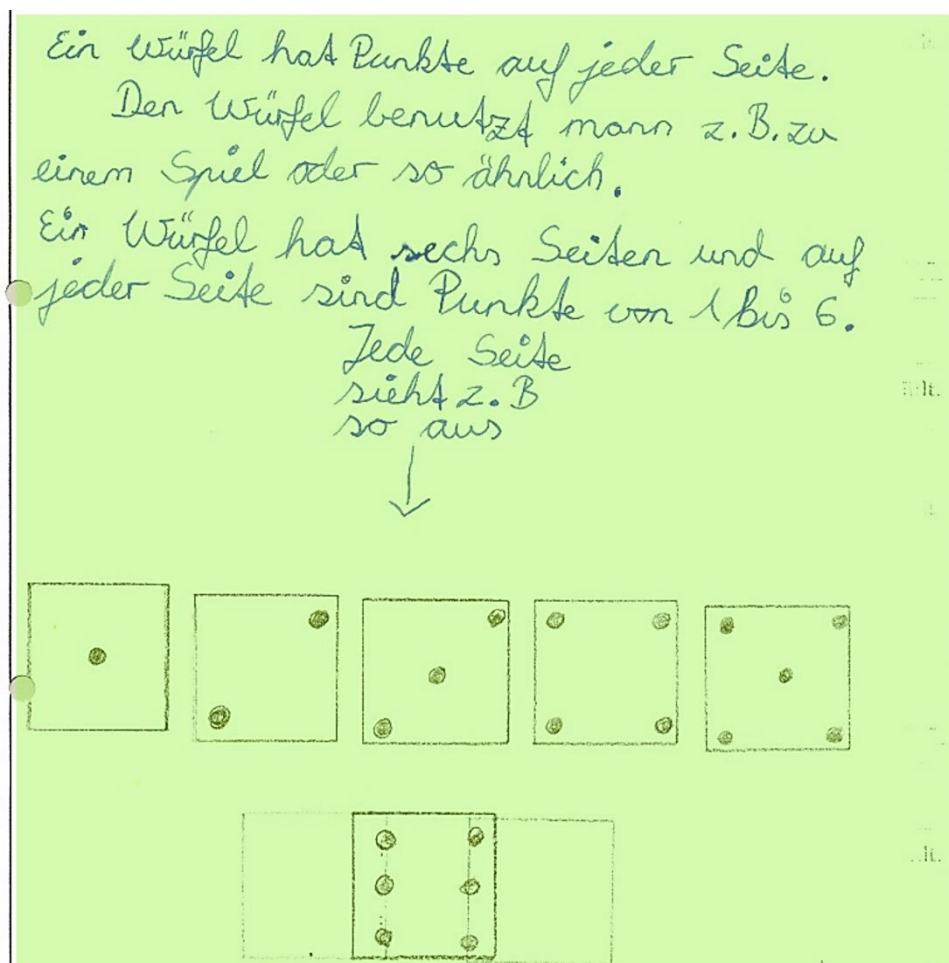 Ein Würfel hat Punkte auf jeder Seite.
Den Würfel benutzt mann z.B. zu
einem Spiel oder so ähnlich.
Ein Würfel hat sechs Seiten und auf
jeder Seite sind Punkte von 1 bis 6.
Jede Seite
sieht z.B
so aus